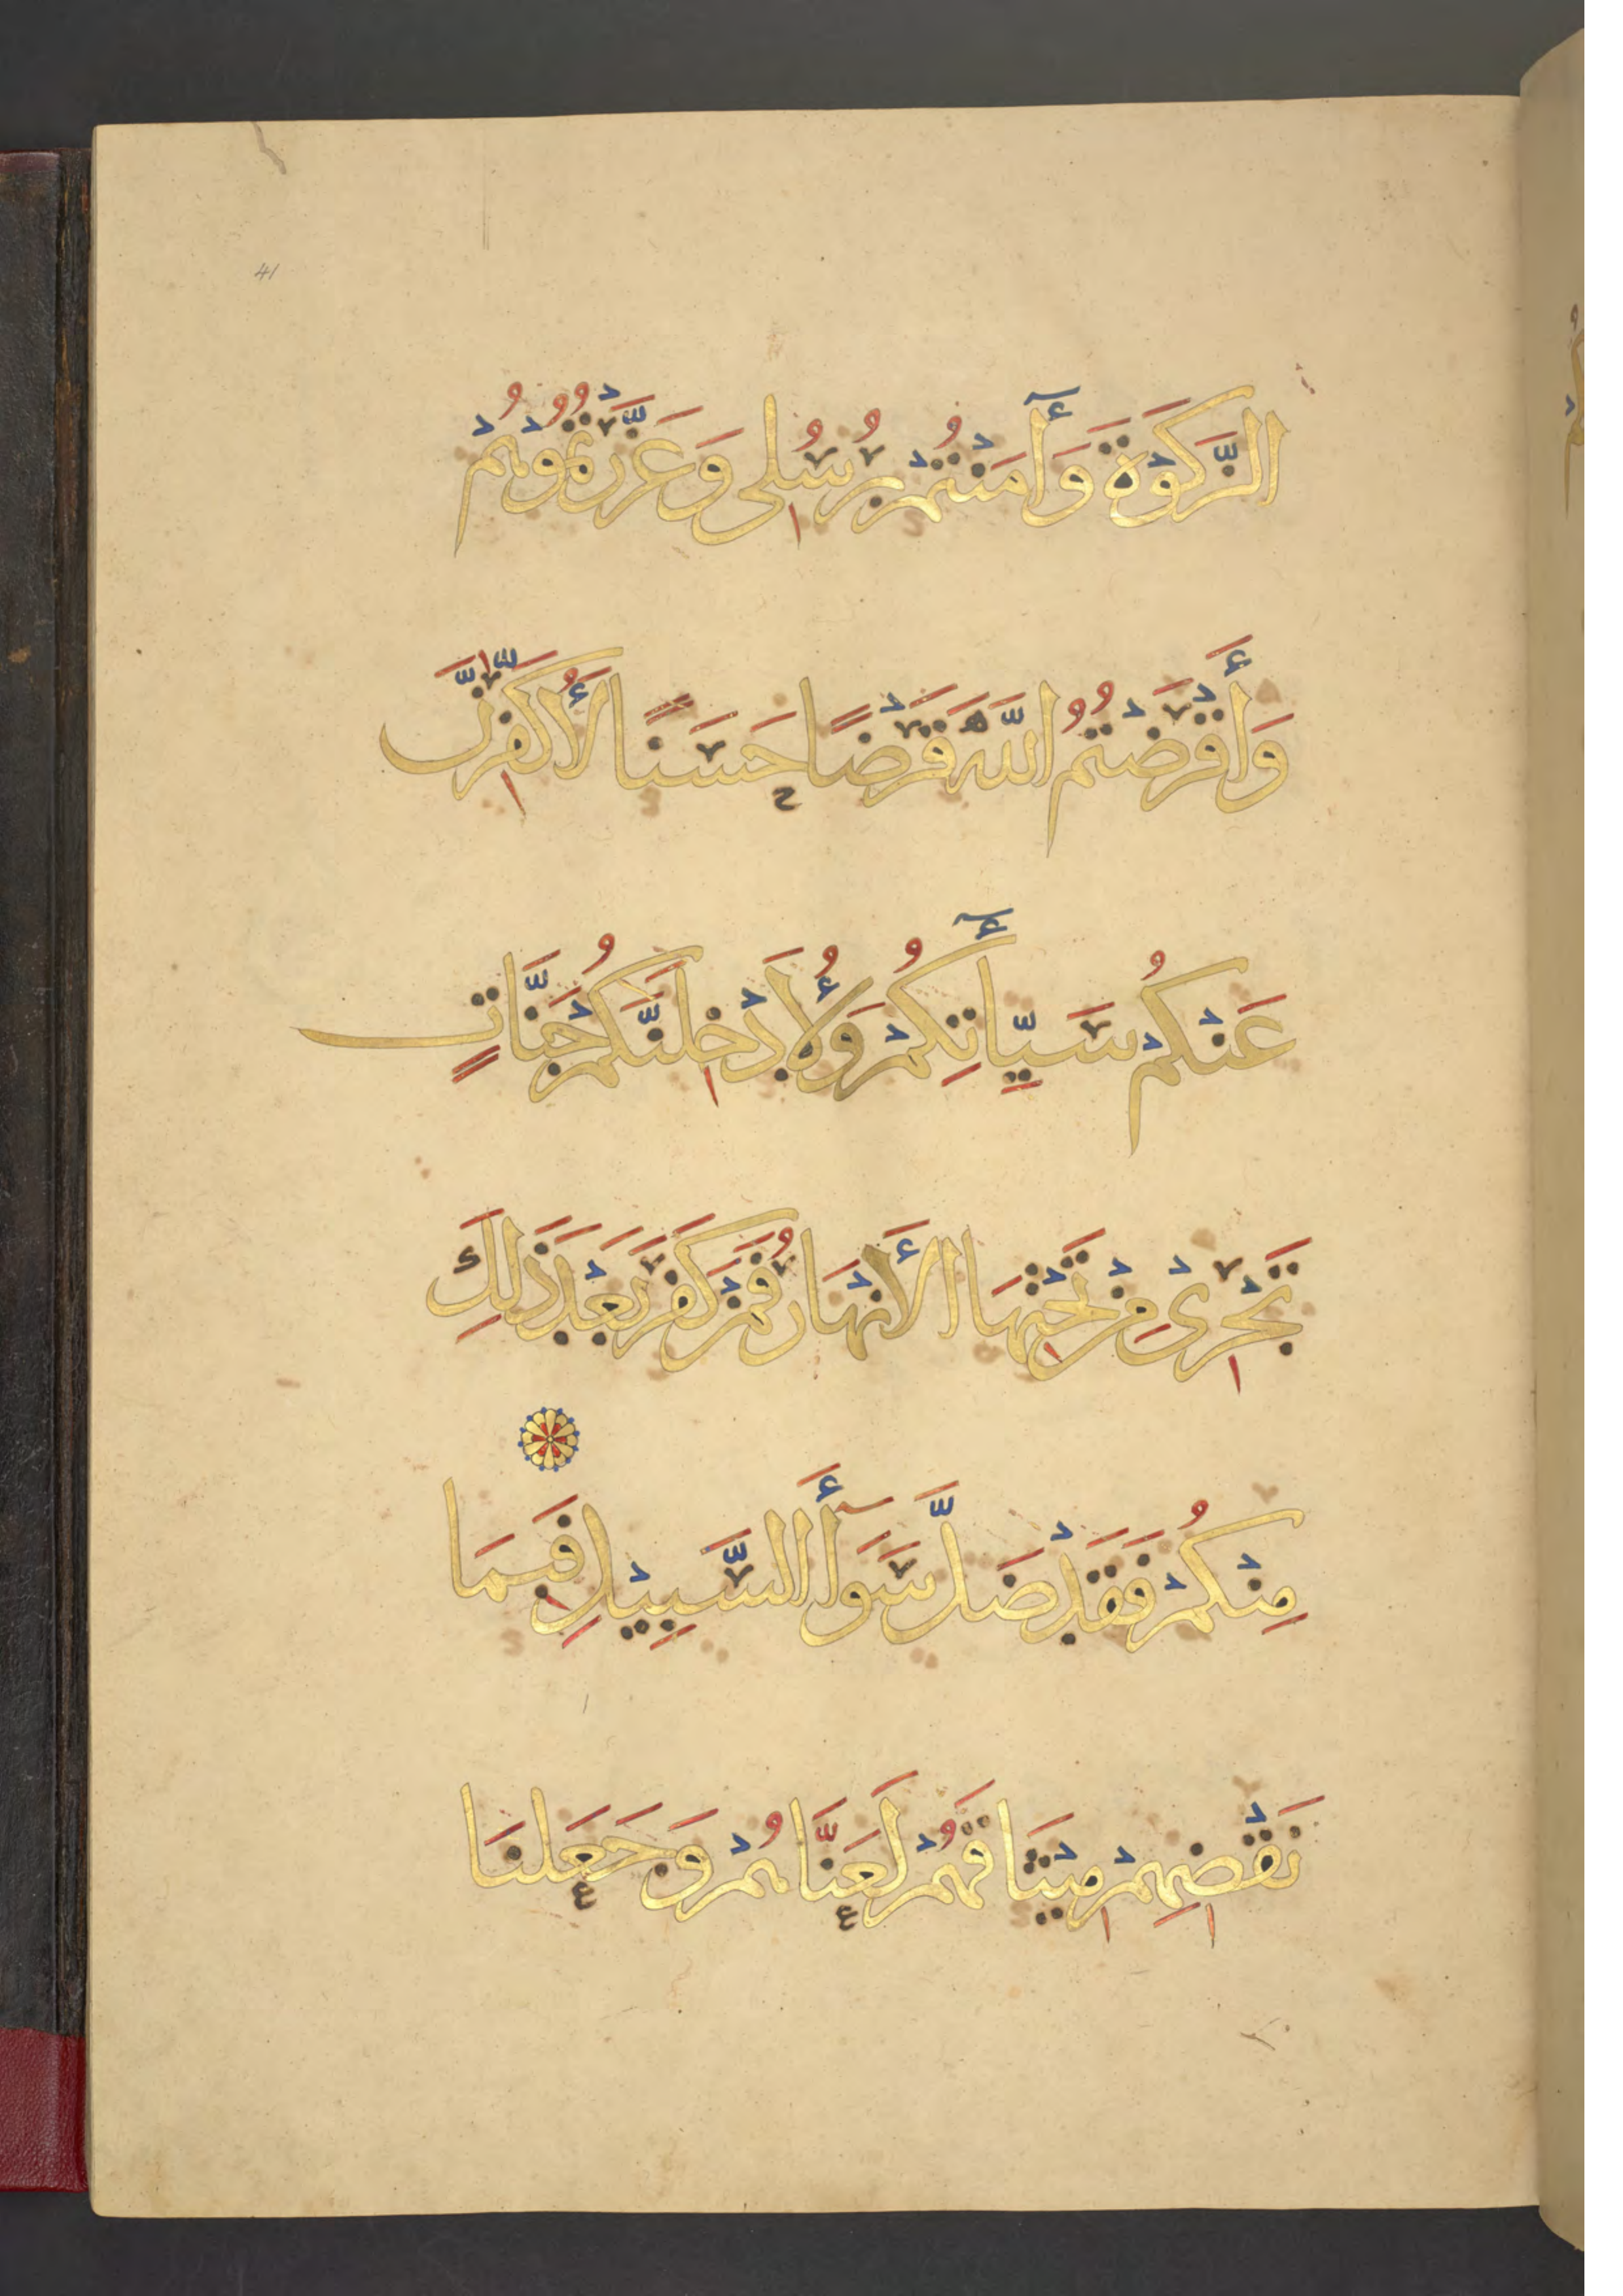 41
الزَّكَوٰةَ وَأَمَنْتُمْ بِرُسُلِى وَعَزَّرْتُمُوهُمْ
وَأَقْرَضْتُمُ اللَّهَ قَرْضًا حَسَنًا لَأُكَفِّرَنَّ
عَنْكُمْ سَيِّأَتِكُمْ وَلَأُدْخِلَنَّكُمْ جَنَّاتٍ
تَجْرِى مِنْ تَحْتِهَا الْأَنْهَارُ فَمَنْ كَفَرَ بَعْدَ ذَلِكَ
مِنْكُمْ فَقَدْ ضَلَّ سَوَأَ السَّبِيْلِ فَبِمَا
نَقْضِهِمْ مِيْثَاقَهُمْ لَعَنَّاهُمْ وَجَعَلْنَا